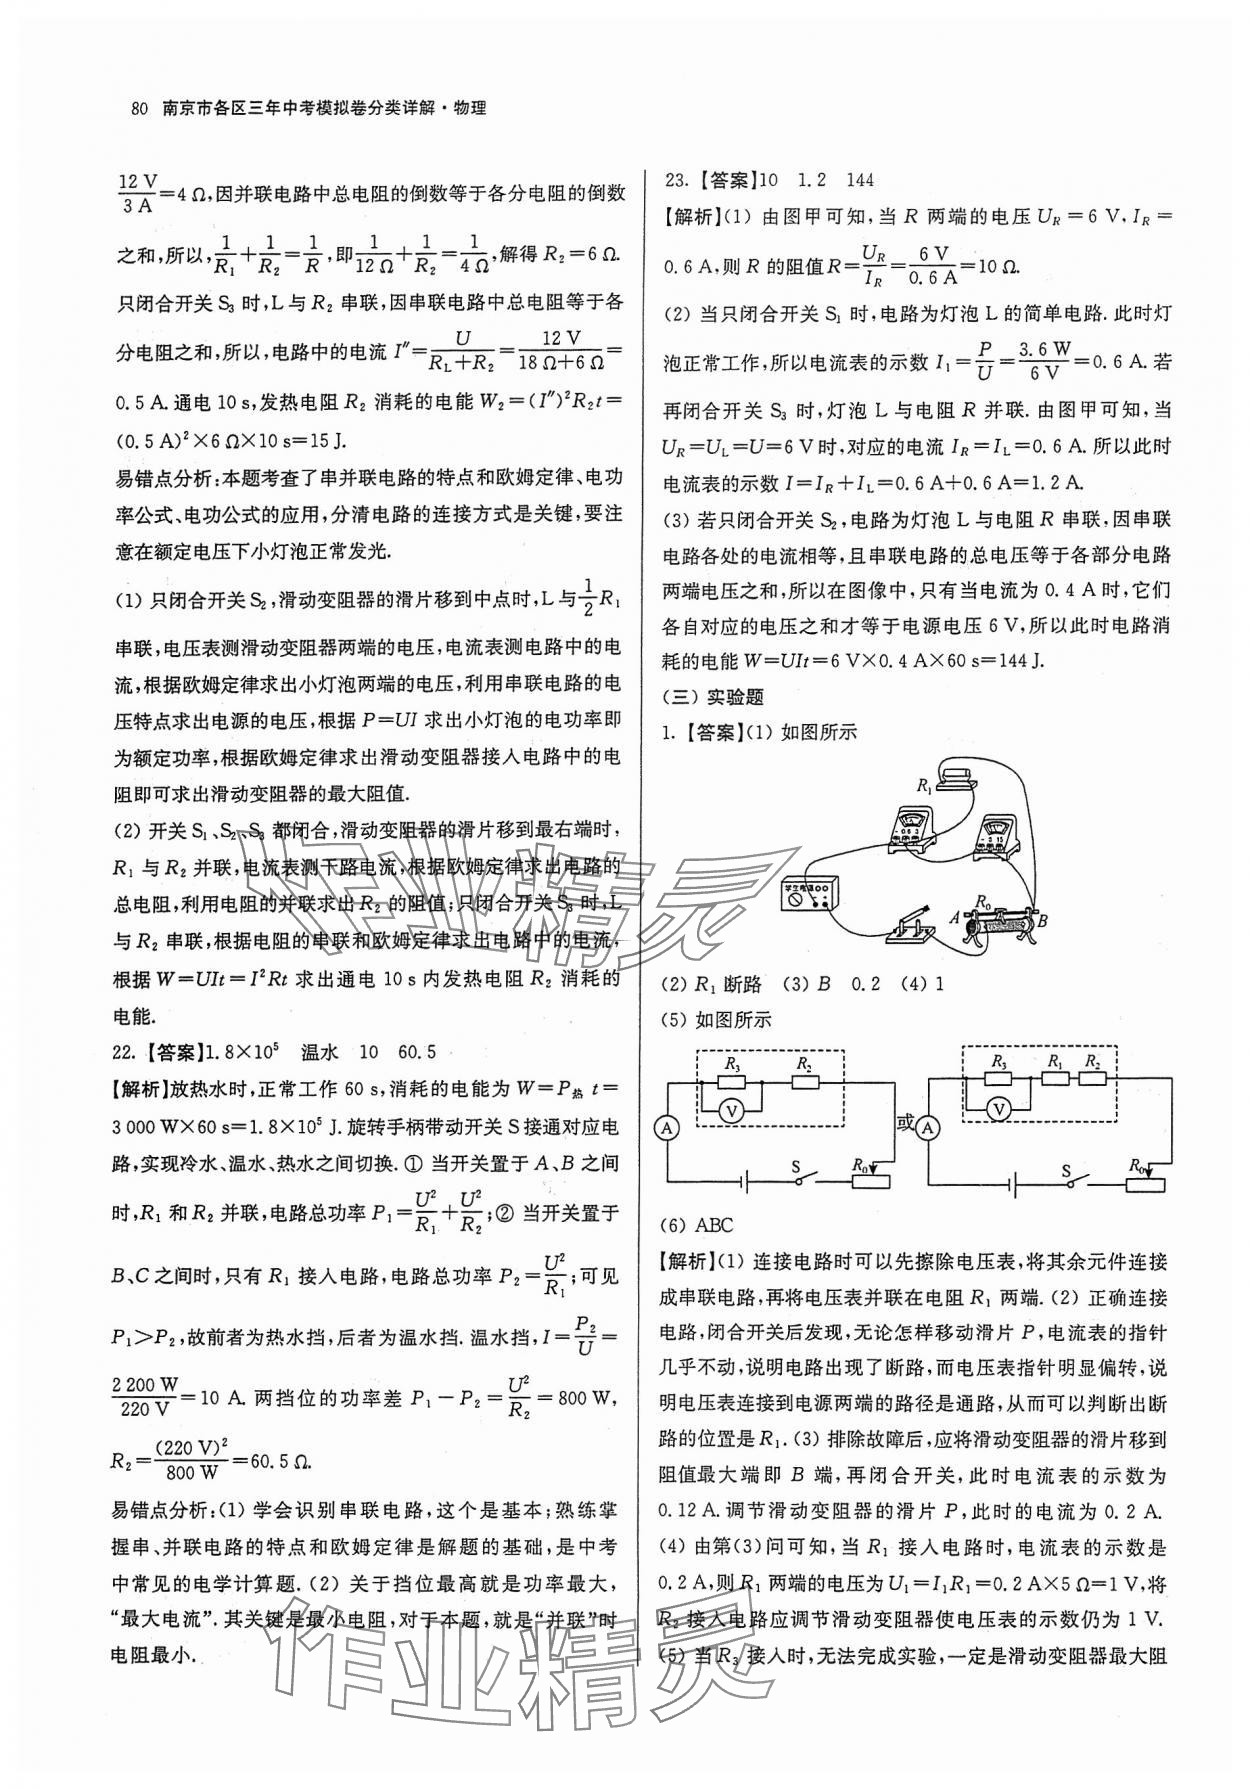 80 南京市各区三年中考模拟卷分类详解·物理
12 V/3 A=4 Ω,因并联电路中总电阻的倒数等于各分电阻的倒数
之和,所以,1/R₁+1/R₂=1/R,即1/12 Ω+1/R₂=1/4 Ω,解得 R₂=6 Ω.
只闭合开关 S₃ 时,L 与 R₂ 串联,因串联电路中总电阻等于各
分电阻之和,所以,电路中的电流 I″=U/(R_L+R₂)=12 V/(18 Ω+6 Ω)=
0.5 A.通电 10 s,发热电阻 R₂ 消耗的电能 W₂=(I″)²R₂t=
(0.5 A)²×6 Ω×10 s=15 J.
易错点分析:本题考查了串并联电路的特点和欧姆定律、电功
率公式、电功公式的应用,分清电路的连接方式是关键,要注
意在额定电压下小灯泡正常发光.
(1) 只闭合开关 S₂,滑动变阻器的滑片移到中点时,L 与1/2 R₁
串联,电压表测滑动变阻器两端的电压,电流表测电路中的电
流,根据欧姆定律求出小灯泡两端的电压,利用串联电路的电
压特点求出电源的电压,根据 P=UI 求出小灯泡的电功率即
为额定功率,根据欧姆定律求出滑动变阻器接入电路中的电
阻即可求出滑动变阻器的最大阻值.
(2) 开关 S₁、S₂、S₃ 都闭合,滑动变阻器的滑片移到最右端时,
R₁ 与 R₂ 并联,电流表测干路电流,根据欧姆定律求出电路的
总电阻,利用电阻的并联求出 R₂ 的阻值;只闭合开关 S₃ 时,L
与 R₂ 串联,根据电阻的串联和欧姆定律求出电路中的电流,
根据 W=UIt=I²Rt 求出通电 10 s 内发热电阻 R₂ 消耗的
电能.
22.【答案】1.8×10⁵ 温水 10 60.5
【解析】放热水时,正常工作 60 s,消耗的电能为 W=P热 t=
3 000 W×60 s=1.8×10⁵ J.旋转手柄带动开关 S 接通对应电
路,实现冷水、温水、热水之间切换.① 当开关置于 A、B 之间
时,R₁ 和 R₂ 并联,电路总功率 P₁=U²/R₁+U²/R₂;② 当开关置于
B、C 之间时,只有 R₁ 接入电路,电路总功率 P₂=U²/R₁;可见
P₁>P₂,故前者为热水挡,后者为温水挡.温水挡,I=P₂/U=
2 200 W/220 V=10 A.两挡位的功率差 P₁-P₂=U²/R₂=800 W,
R₂=(220 V)²/800 W=60.5 Ω.
易错点分析:(1) 学会识别串联电路,这个是基本;熟练掌
握串、并联电路的特点和欧姆定律是解题的基础,是中考
中常见的电学计算题.(2) 关于挡位最高就是功率最大,
“最大电流”.其关键是最小电阻,对于本题,就是“并联”时
电阻最小.
23.【答案】10 1.2 144
【解析】(1) 由图甲可知,当 R 两端的电压 U_R=6 V,I_R=
0.6 A,则 R 的阻值 R=U_R/I_R=6 V/0.6 A=10 Ω.
(2) 当只闭合开关 S₁ 时,电路为灯泡 L 的简单电路.此时灯
泡正常工作,所以电流表的示数 I₁=P/U=3.6 W/6 V=0.6 A.若
再闭合开关 S₃ 时,灯泡 L 与电阻 R 并联.由图甲可知,当
U_R=U_L=U=6 V 时,对应的电流 I_R=I_L=0.6 A.所以此时
电流表的示数 I=I_R+I_L=0.6 A+0.6 A=1.2 A.
(3) 若只闭合开关 S₂,电路为灯泡 L 与电阻 R 串联,因串联
电路各处的电流相等,且串联电路的总电压等于各部分电路
两端电压之和,所以在图像中,只有当电流为 0.4 A 时,它们
各自对应的电压之和才等于电源电压 6 V,所以此时电路消
耗的电能 W=UIt=6 V×0.4 A×60 s=144 J.
(三) 实验题
1.【答案】(1) 如图所示
R₁
- 0.6 3
- 3 15
学生电源
A R₀ B
(2) R₁ 断路 (3) B 0.2 (4) 1
(5) 如图所示
R₃ R₂ V A S R₀
或
R₃ R₁ R₂ V A S R₀
(6) ABC
【解析】(1) 连接电路时可以先擦除电压表,将其余元件连接
成串联电路,再将电压表并联在电阻 R₁ 两端.(2) 正确连接
电路,闭合开关后发现,无论怎样移动滑片 P,电流表的指针
几乎不动,说明电路出现了断路,而电压表指针明显偏转,说
明电压表连接到电源两端的路径是通路,从而可以判断出断
路的位置是 R₁.(3) 排除故障后,应将滑动变阻器的滑片移到
阻值最大端即 B 端,再闭合开关,此时电流表的示数为
0.12 A.调节滑动变阻器的滑片 P,此时的电流为 0.2 A.
(4) 由第(3)问可知,当 R₁ 接入电路时,电流表的示数是
0.2 A,则 R₁ 两端的电压为 U₁=I₁R₁=0.2 A×5 Ω=1 V,将
R₂ 接入电路应调节滑动变阻器使电压表的示数仍为 1 V.
(5) 当 R₃ 接入时,无法完成实验,一定是滑动变阻器最大阻
作业精灵
作业精灵